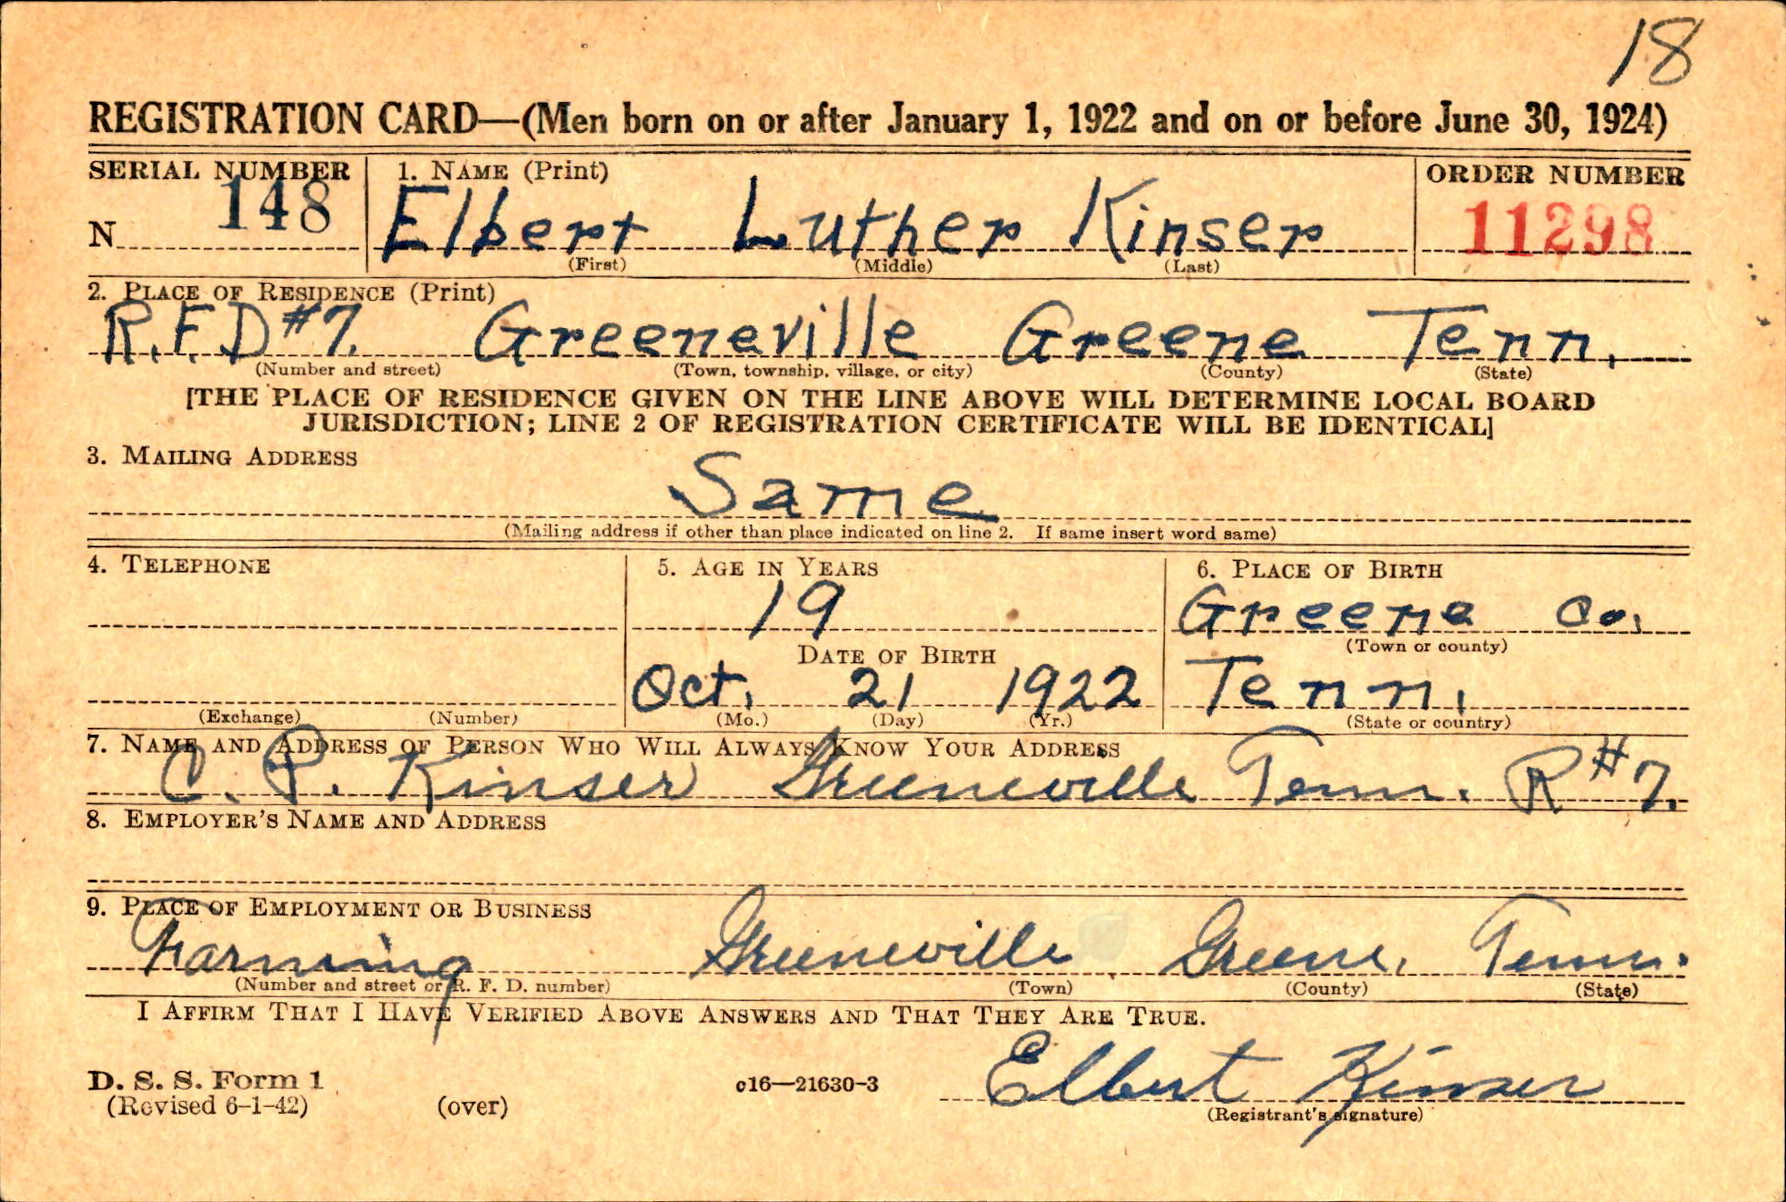 18
REGISTRATION CARD—(Men born on or after January 1, 1922 and on or before June 30, 1924)
SERIAL NUMBER 1. NAME (Print) ORDER NUMBER
N 148 Elbert Luther Kinser 11298
(First) (Middle) (Last)
2. PLACE OF RESIDENCE (Print)
R.F.D #7. Greeneville Greene Tenn.
(Number and street) (Town, township, village, or city) (County) (State)
[THE PLACE OF RESIDENCE GIVEN ON THE LINE ABOVE WILL DETERMINE LOCAL BOARD
JURISDICTION; LINE 2 OF REGISTRATION CERTIFICATE WILL BE IDENTICAL]
3. MAILING ADDRESS
Same
(Mailing address if other than place indicated on line 2. If same insert word same)
4. TELEPHONE 5. AGE IN YEARS 6. PLACE OF BIRTH
19 Greene Co.
DATE OF BIRTH (Town or county)
Oct. 21 1922 Tenn.
(Exchange) (Number) (Mo.) (Day) (Yr.) (State or country)
7. NAME AND ADDRESS OF PERSON WHO WILL ALWAYS KNOW YOUR ADDRESS
C. P. Kinser Greeneville Tenn. R#7.
8. EMPLOYER'S NAME AND ADDRESS
9. PLACE OF EMPLOYMENT OR BUSINESS
Farming Greeneville Greene, Tenn.
(Number and street or R. F. D. number) (Town) (County) (State)
I AFFIRM THAT I HAVE VERIFIED ABOVE ANSWERS AND THAT THEY ARE TRUE.
D. S. S. Form 1 c16—21630-3 Elbert Kinser
(Revised 6-1-42) (over) (Registrant's signature)